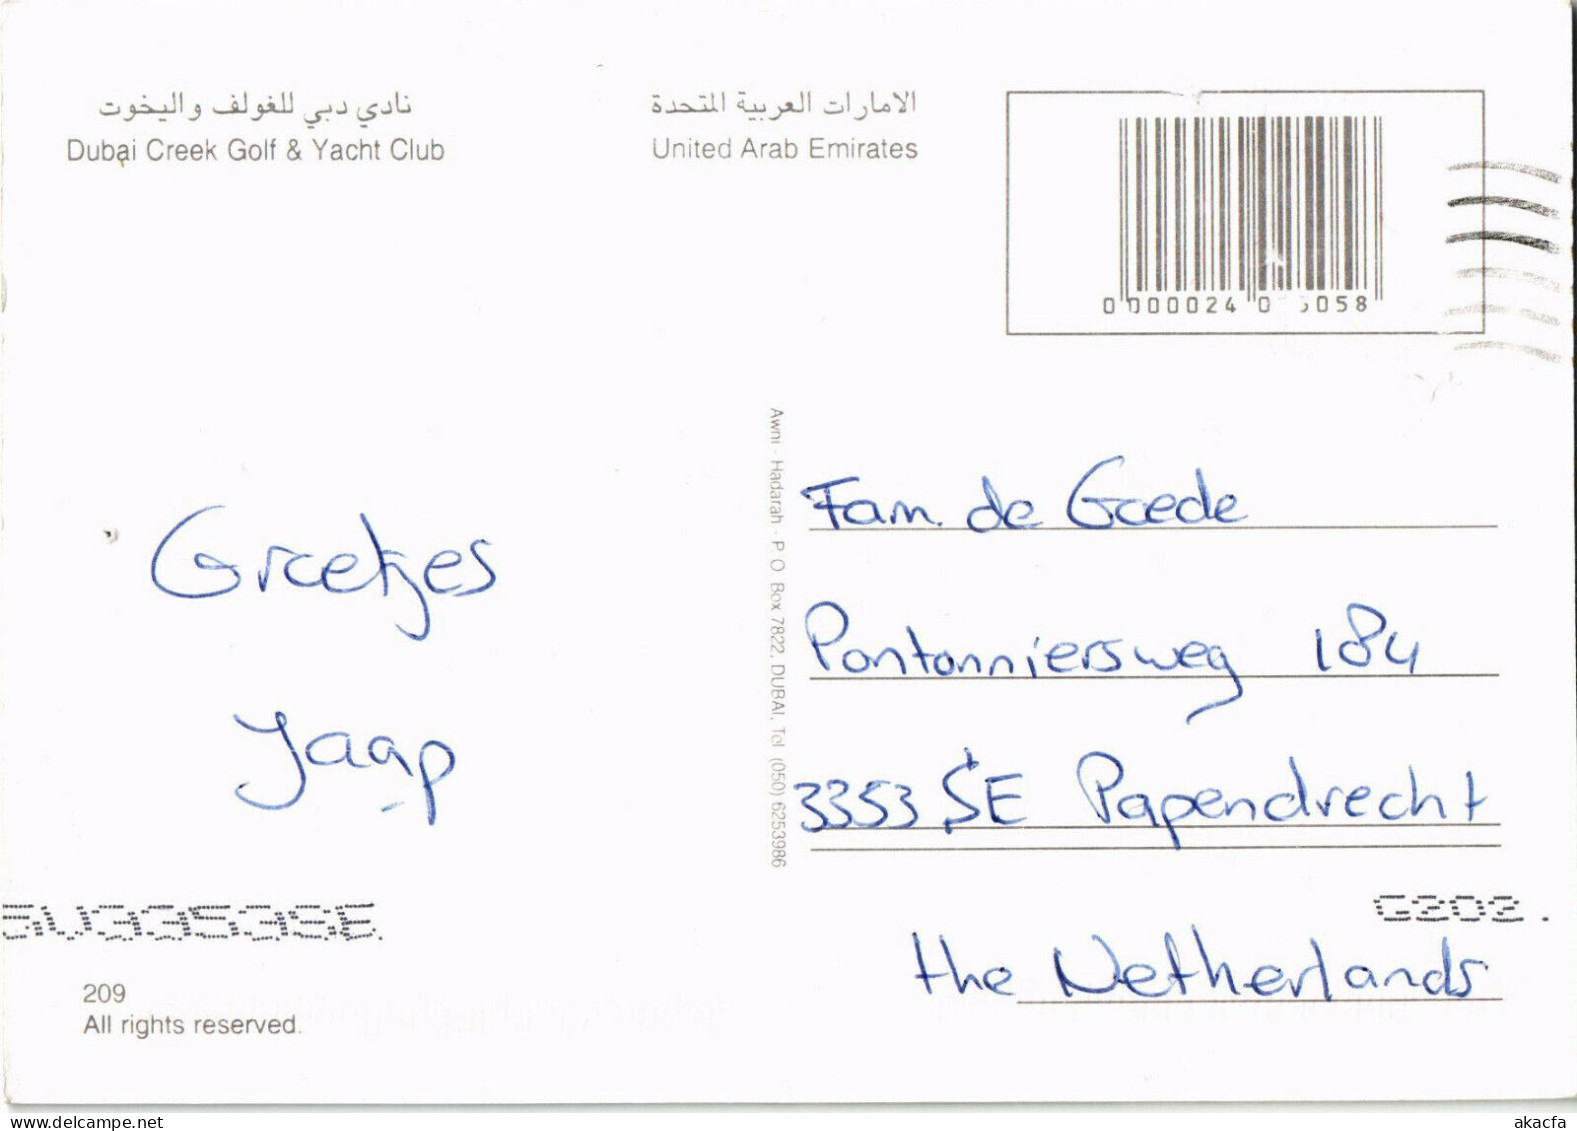 نادي دبي للغولف و اليخوت
Dubai Creek Golf & Yacht Club
الامارات العربية المتحدة
United Arab Emirates
Awni - Hadarah - P.O. Box 7822, DUBAI, Tel (050) 6253986
Groetjes
Jaap
Fam. de Goede
Pontonniersweg 184
3353 SE Papendrecht
the Netherlands
3353SE
G202.
209
All rights reserved.
akacfa